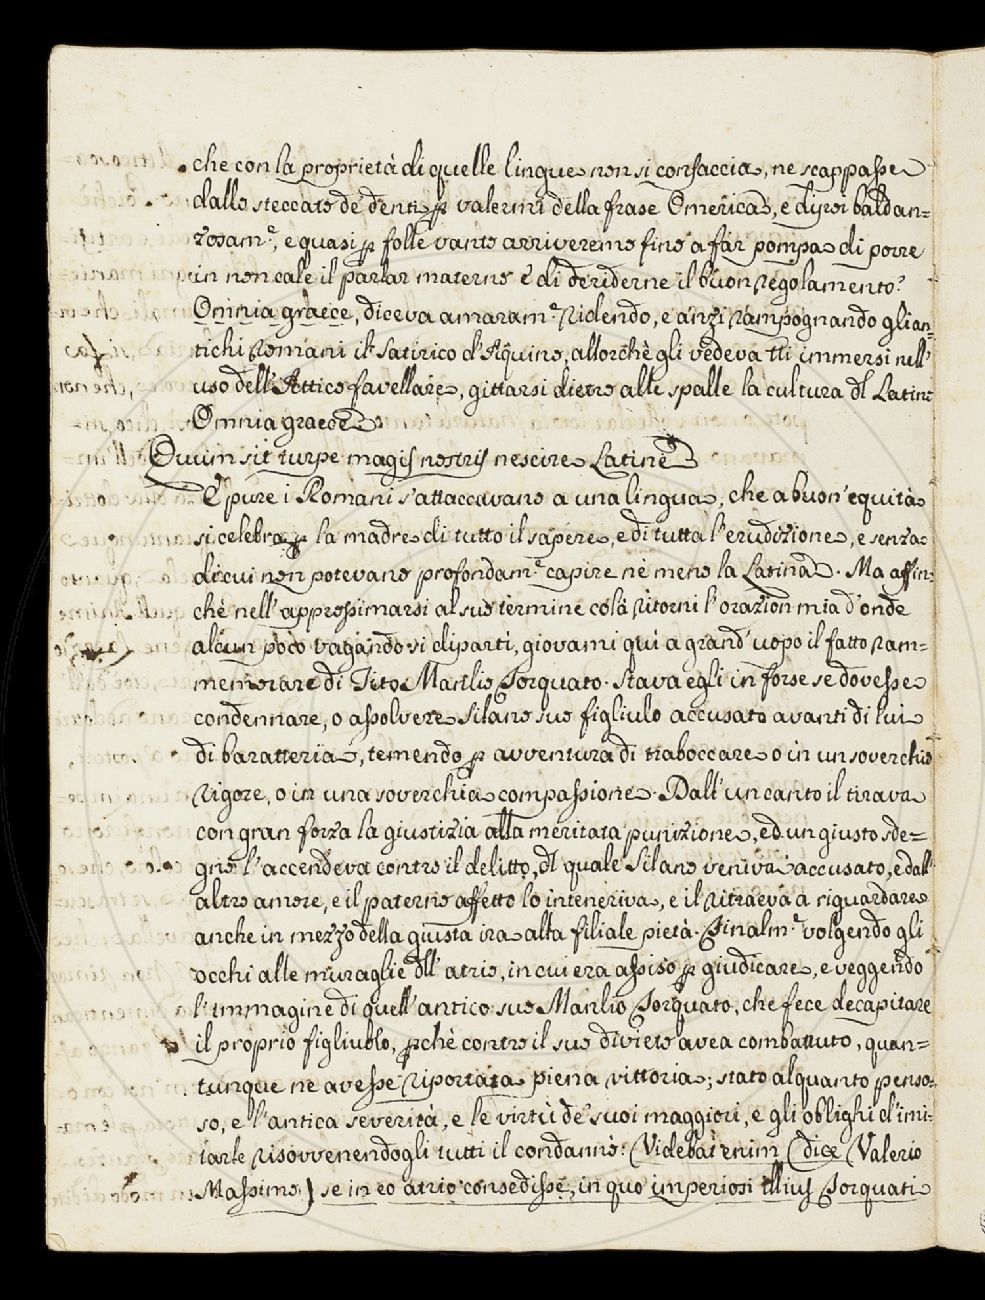 che con la proprietà di quelle lingue non si confaccia, ne scappasse
dallo steccato de' denti p valermi della frase Omerica, e dipoi baldan=
zosam.e, e quasi p folle vanto arriveremo fino a far pompa di porre
in non cale il parlar materno e di deriderne il buon regolamento?
Omnia graece, diceva amaram.e ridendo, e anzi rampognando gli an=
tichi Romani il Satirico d'Aquino, allorchè gli vedeva tti immersi nell'
uso dell'Attico favellare, gittarsi dietro alle spalle la cultura dl Latino
Omnia graece
Quum sit turpe magis nostris nescire Latinè
E pure i Romani s'attaccavano a una lingua, che a buon'equità
si celebra p la madre di tutto il sapere, e di tutta l'erudizione, e senza
di cui non potevano profondam.e capire ne meno la Latina. Ma affin=
chè nell'appressimarsi al suo termine colà ritorni l'orazion mia d'onde
alcun poco vagando si dipartì, giovami quì a grand'uopo il fatto ram=
memorare di Tito Manlio Torquato. Stava egli in forse se dovesse
condennare, o assolvere Silano suo figliuolo accusato avanti di lui
di baratteria, temendo p avventura di traboccare o in un soverchio
rigore, o in una soverchia compassione. Dall'un canto il tirava
con gran forza la giustizia alla meritata punizione, ed un giusto sde=
gno l'accendeva contro il delitto, dl quale Silano veniva accusato, e dall'
altro amore, e il paterno affetto lo inteneriva, e il ritraeva a riguardare
anche in mezzo della giusta ira alta filiale pietà. Finalm.e volgendo gli
occhi alle muraglie dll'atrio, in cui era assiso p giudicare, e veggendo
l'immagine di quell'antico suo Manlio Torquato, che fece decapitare
il proprio figliuolo, pchè contro il suo divieto avea combattuto, quan=
tunque ne avesse riportata piena vittoria; stato alquanto penso=
so, e l'antica severità, e le virtù de' suoi maggiori, e gli obblighi d'imi=
tarle risovvenendogli tutti il condannò: Videbat enim (dice Valerio
Massimo) se in eo atrio consedisse, in quo imperiosi illius Torquati